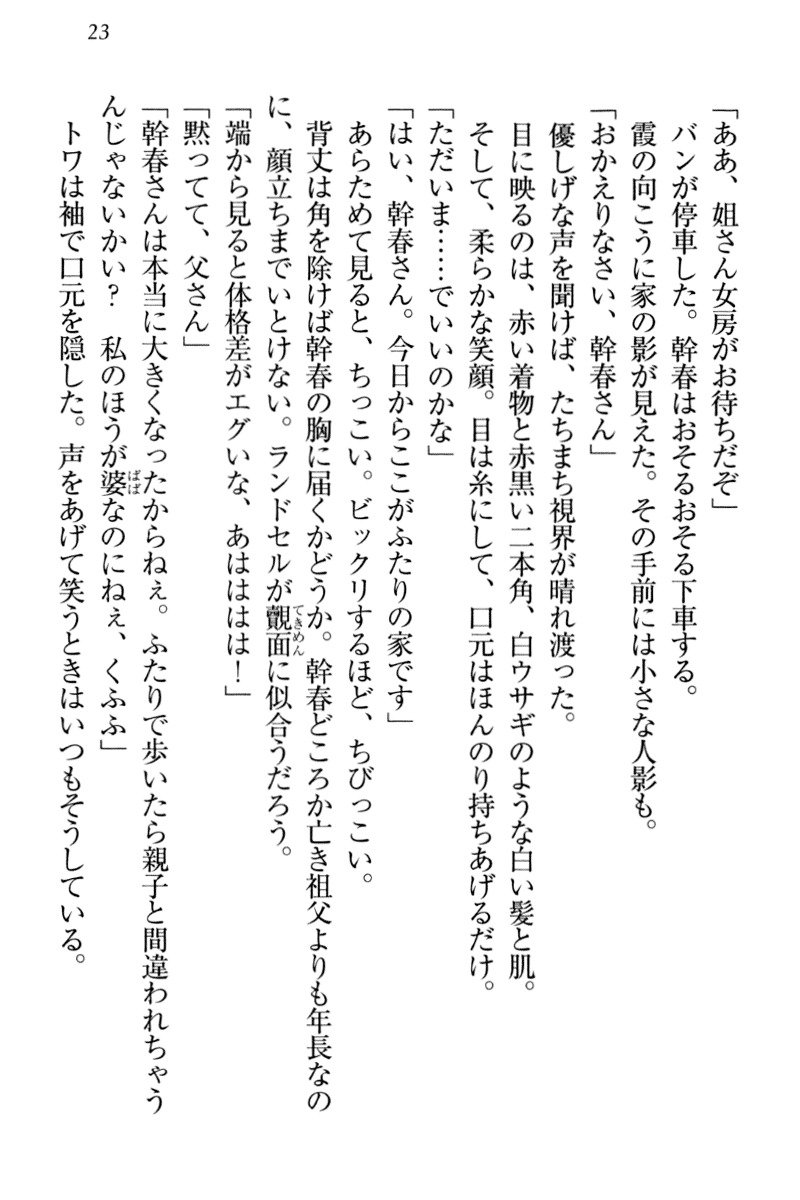 23
「ああ、姐さん女房がお待ちだぞ」
バンが停車した。幹春はおそるおそる下車する。
霞の向こうに家の影が見えた。その手前には小さな人影も。
「おかえりなさい、幹春さん」
優しげな声を聞けば、たちまち視界が晴れ渡った。
目に映るのは、赤い着物と赤黒い二本角、白ウサギのような白い髪と肌。
そして、柔らかな笑顔。目は糸にして、口元はほんのり持ちあげるだけ。
「ただいま……でいいのかな」
「はい、幹春さん。今日からここがふたりの家です」
あらためて見ると、ちっこい。ビックリするほど、ちびっこい。
背丈は角を除けば幹春の胸に届くかどうか。幹春どころか亡き祖父よりも年長なの
に、顔立ちまでいとけない。ランドセルが覿面てきめんに似合うだろう。
「端から見ると体格差がエグいな、あはははは！」
「黙ってて、父さん」
「幹春さんは本当に大きくなったからねぇ。ふたりで歩いたら親子と間違われちゃう
んじゃないかい？　私のほうが婆ばばなのにねぇ、くふふ」
トワは袖で口元を隠した。声をあげて笑うときはいつもそうしている。